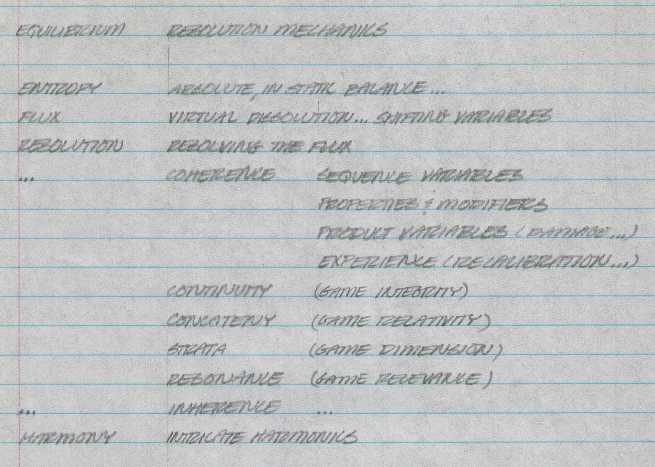 EQUILIBRIUM RESOLUTION MECHANICS
ENTROPY ABSOLUTE, IN STATIC BALANCE...
FLUX VIRTUAL DISSOLUTION... SHIFTING VARIABLES
RESOLUTION RESOLVING THE FLUX
... COHERENCE SEQUENCE VARIABLES
PROPERTIES & MODIFIERS
PRODUCT VARIABLES (DAMAGE...)
EXPERIENCE (RECALIBRATION...)
CONTINUITY (GAME INTEGRITY)
CONCATENY (GAME RELATIVITY)
STRATA (GAME DIMENSION)
RESONANCE (GAME RELEVANCE)
... INHERENCE ...
HARMONY INTRICATE HARMONICS